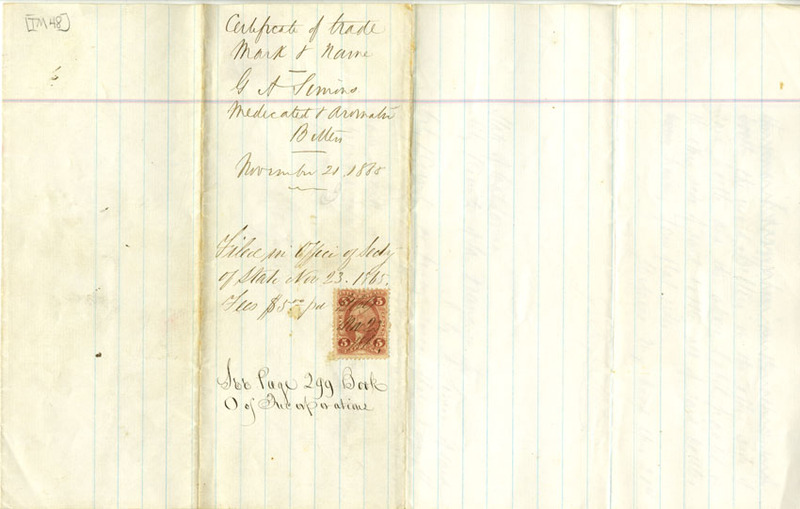 [TM 48]
Certificate of trade
Mark & Name
G A Simons
Medecated & Aromatic
Bitters
November 21, 1865
Filed in Office of Secty
of State Nov 23. 1865.
Fees $5.00 pd
5 5
Nov 23
5 5
See Page 299 Book
O of Incorporations